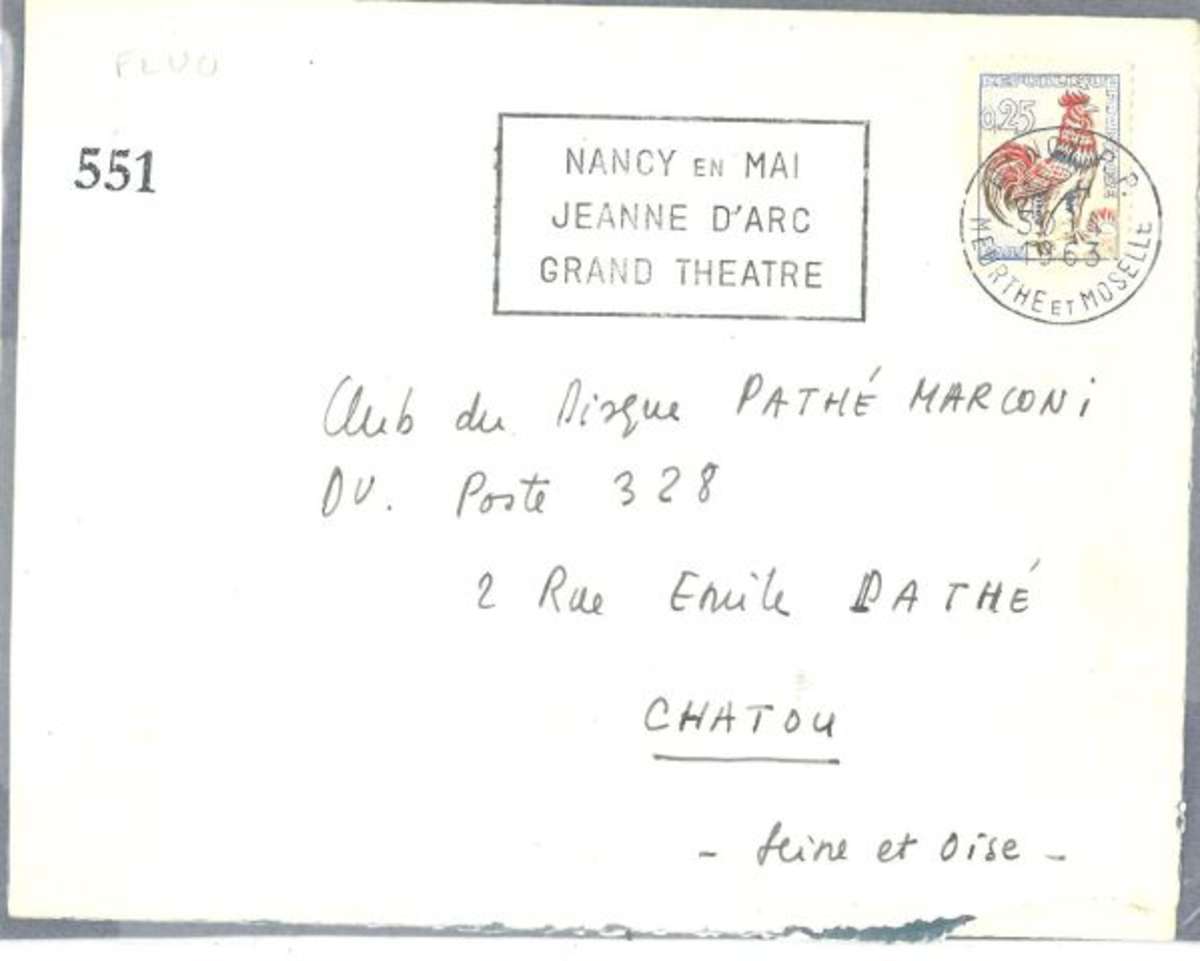 FLUO
551
NANCY EN MAI
JEANNE D'ARC
GRAND THEATRE
REPUBLIQUE
0,25
R.P.
1963
MEURTHE ET MOSELLE
Club du Disque PATHÉ MARCONi
DV. Poste 328
2 Rue Emile PATHÉ
CHATOU
- Seine et Oise -